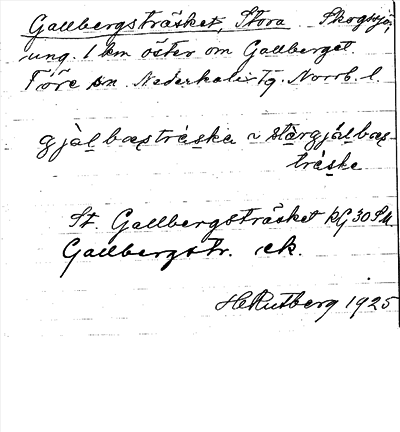 Gallbergsträsket, Stora Skogssjö,
ung. 1 km öster om Gallberget.
Töre sn. Nederkalix tg. Norrb. l.
gjälbæsträska ~ stårgjälbæs-
träska
St. Gallbergsträsket kG 30 SM
Gallbergstr. ek.
H Rutberg 1925